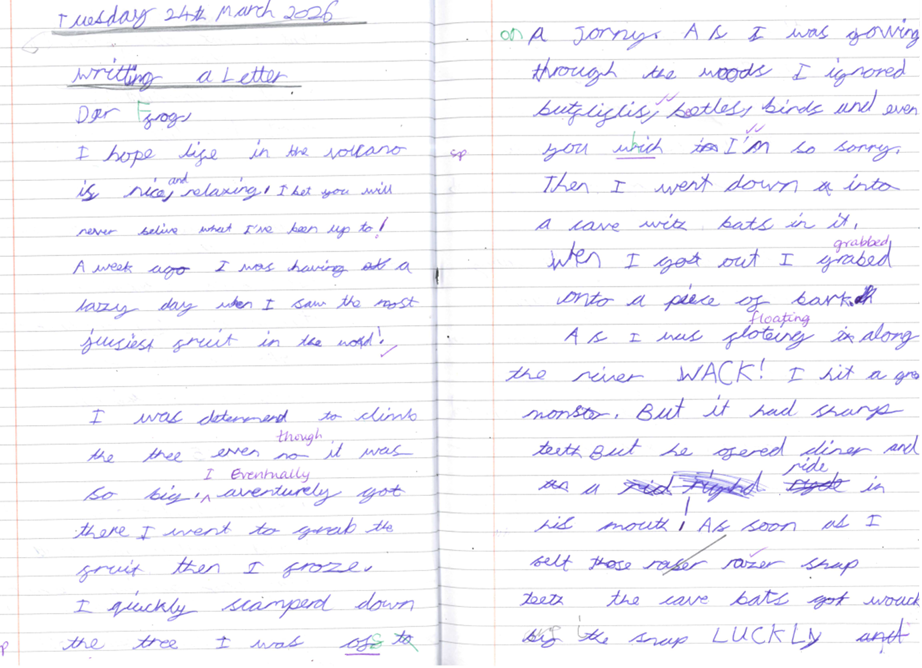 Tuesday 24th March 2026
Writting a Letter
Dear Frog,
I hope life in the volcano
is nice, and relaxing, I bet you will
never belive what I've been up to!
A week ago I was having a
lazzy day when I saw the most
juisiest fruit in the world!
I was determend to climb
though
the tree even no it was
I Eventually
so big, aventurely got
there I went to grab the
fruit then I froze.
I quickly scamperd down
the tree I was
on A jorny. As I was gowing
through the woods I ignored
butfliglis, beetles, birds and even
sp you which I'm so sorry.
Then I went down into
a cave with bats in it.
grabbed
When I got out I grabed
onto a piece of bark
floating
As I was gloteing along
the river WACK! I hit a gro
monster. But it had sharp
teeth But he ofered diner and
ride
a in
his mouth, As soon as I
felt those razer sharp
teeth the cave bats got
the snap LUCKLY